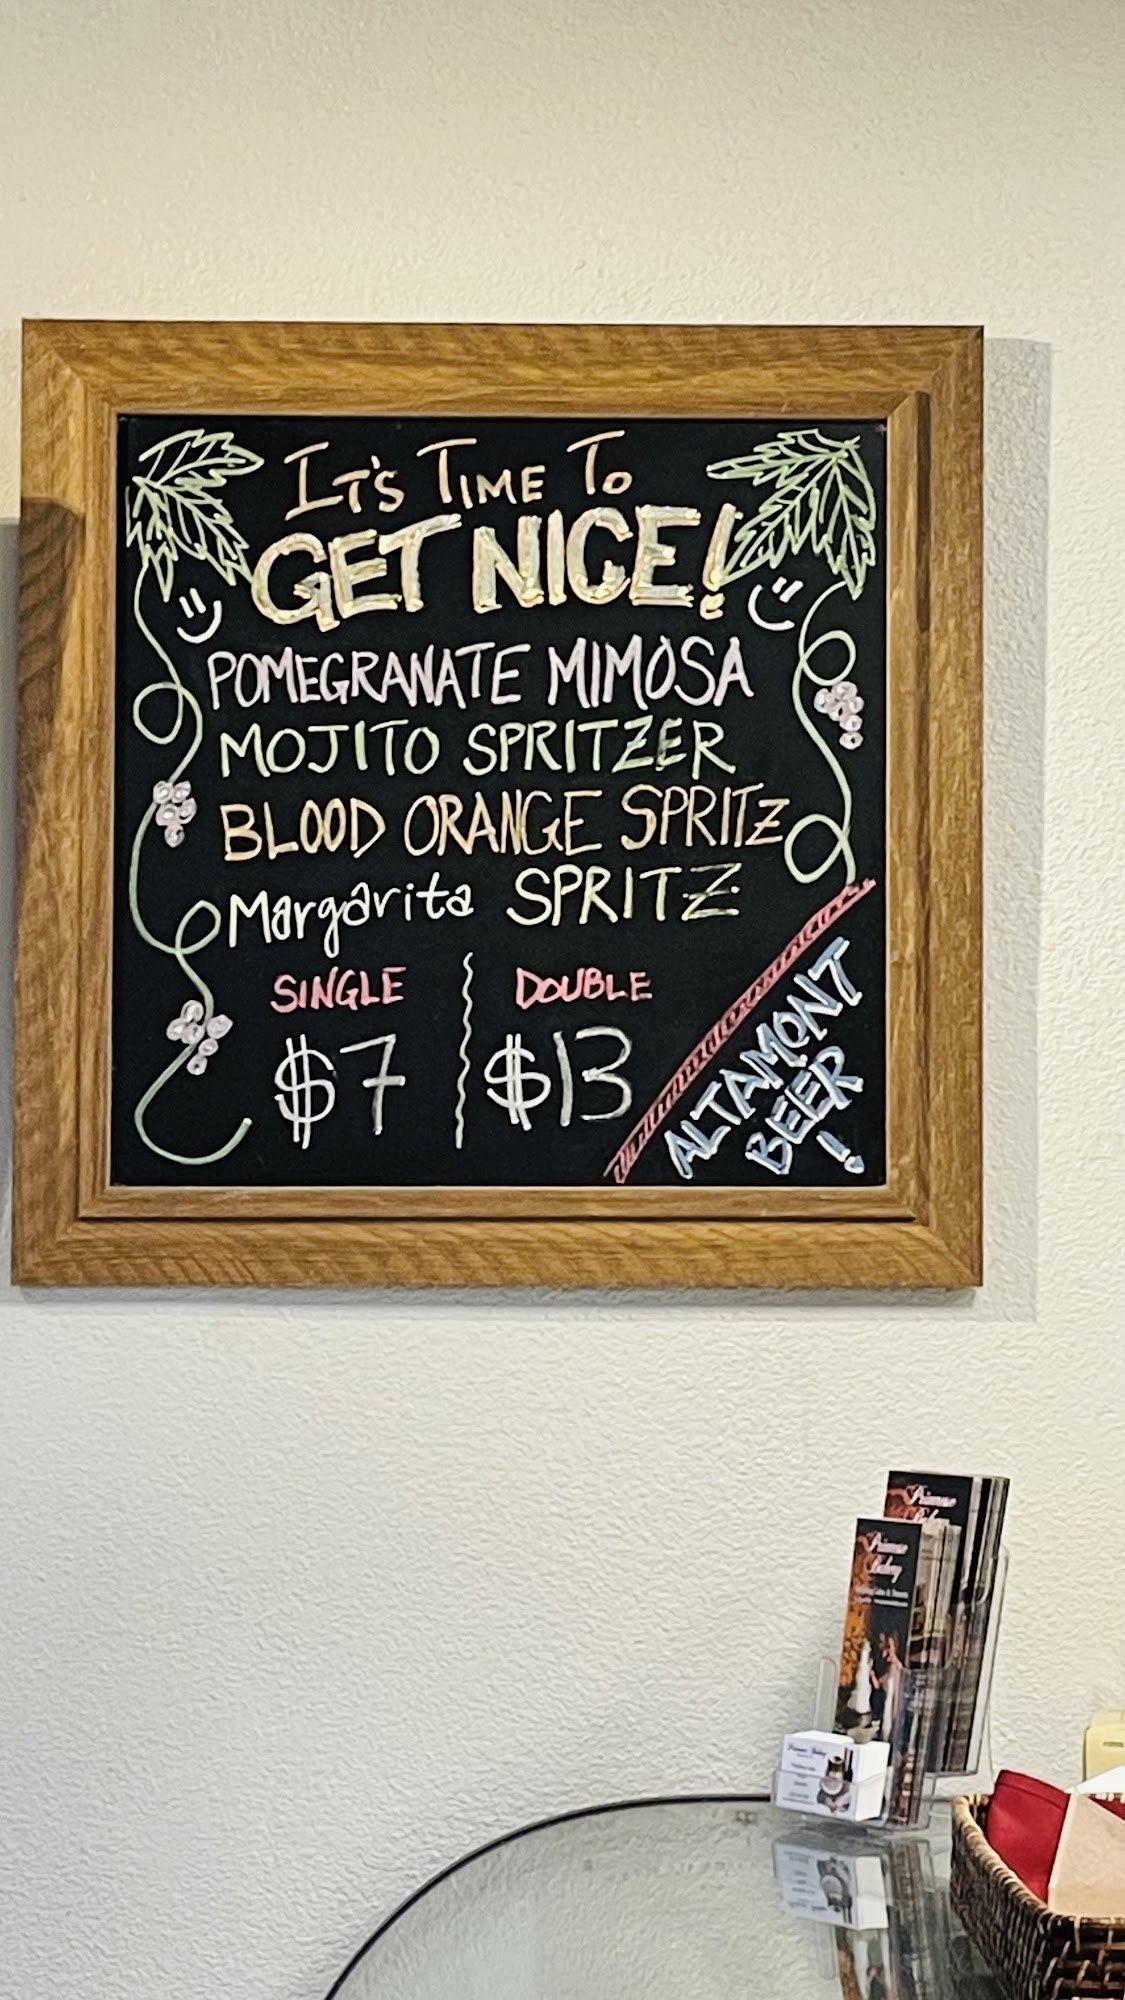 IT'S TIME TO
GET NICE!
POMEGRANATE MIMOSA
MOJITO SPRITZER
BLOOD ORANGE SPRITZ
Margarita SPRITZ
SINGLE
$7
DOUBLE
$13
ALTAMONT
BEER
!